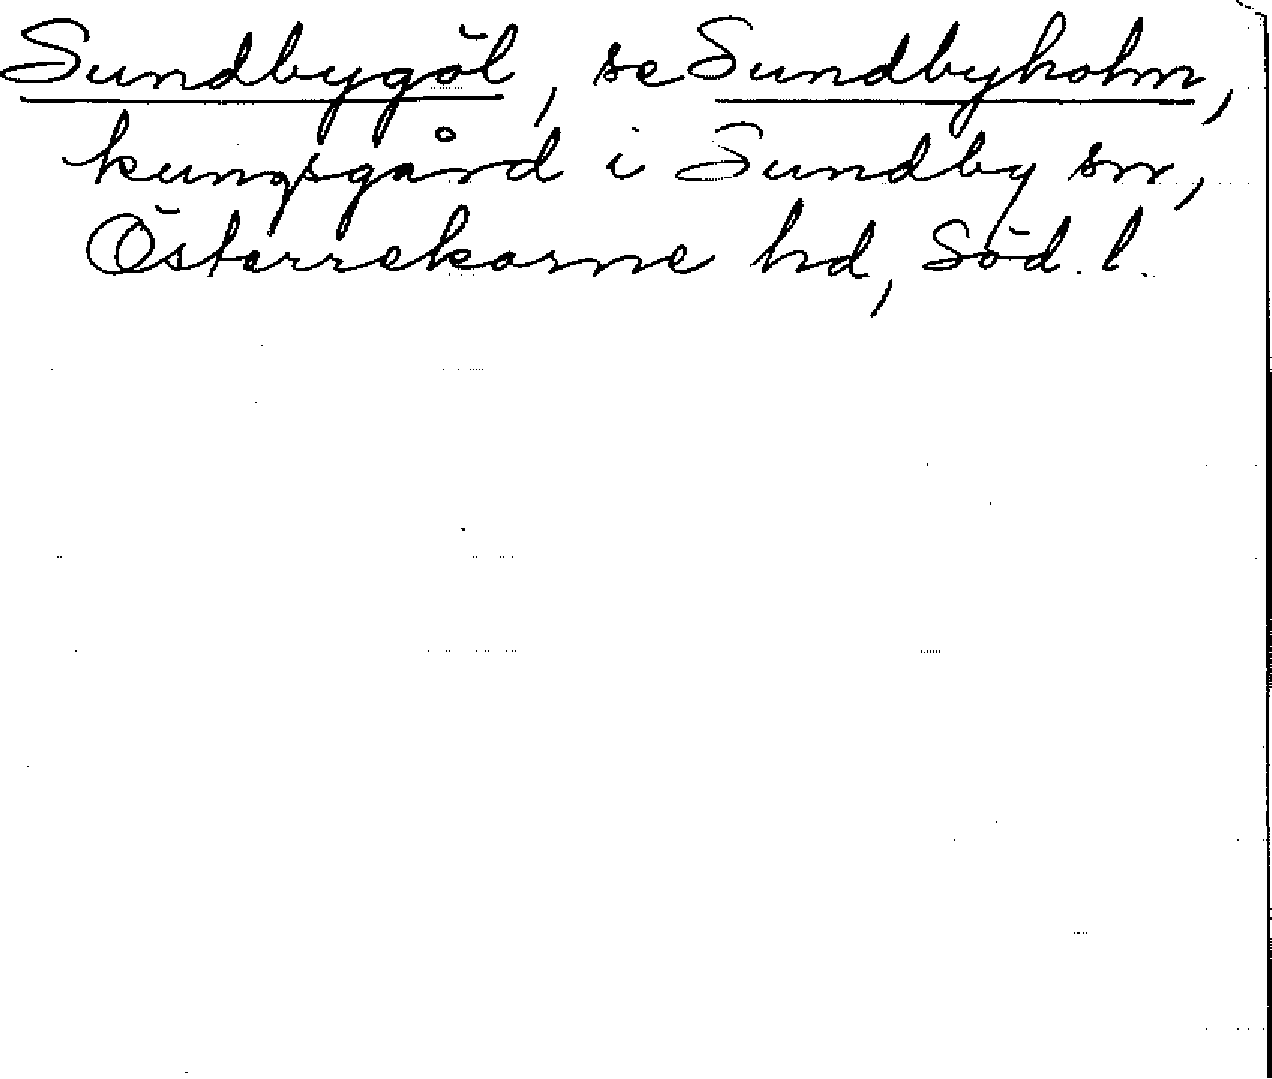 Sundbygöl, se Sundbyholm,
kungsgård i Sundby sn,
Österrekarne hd, Söd. l.